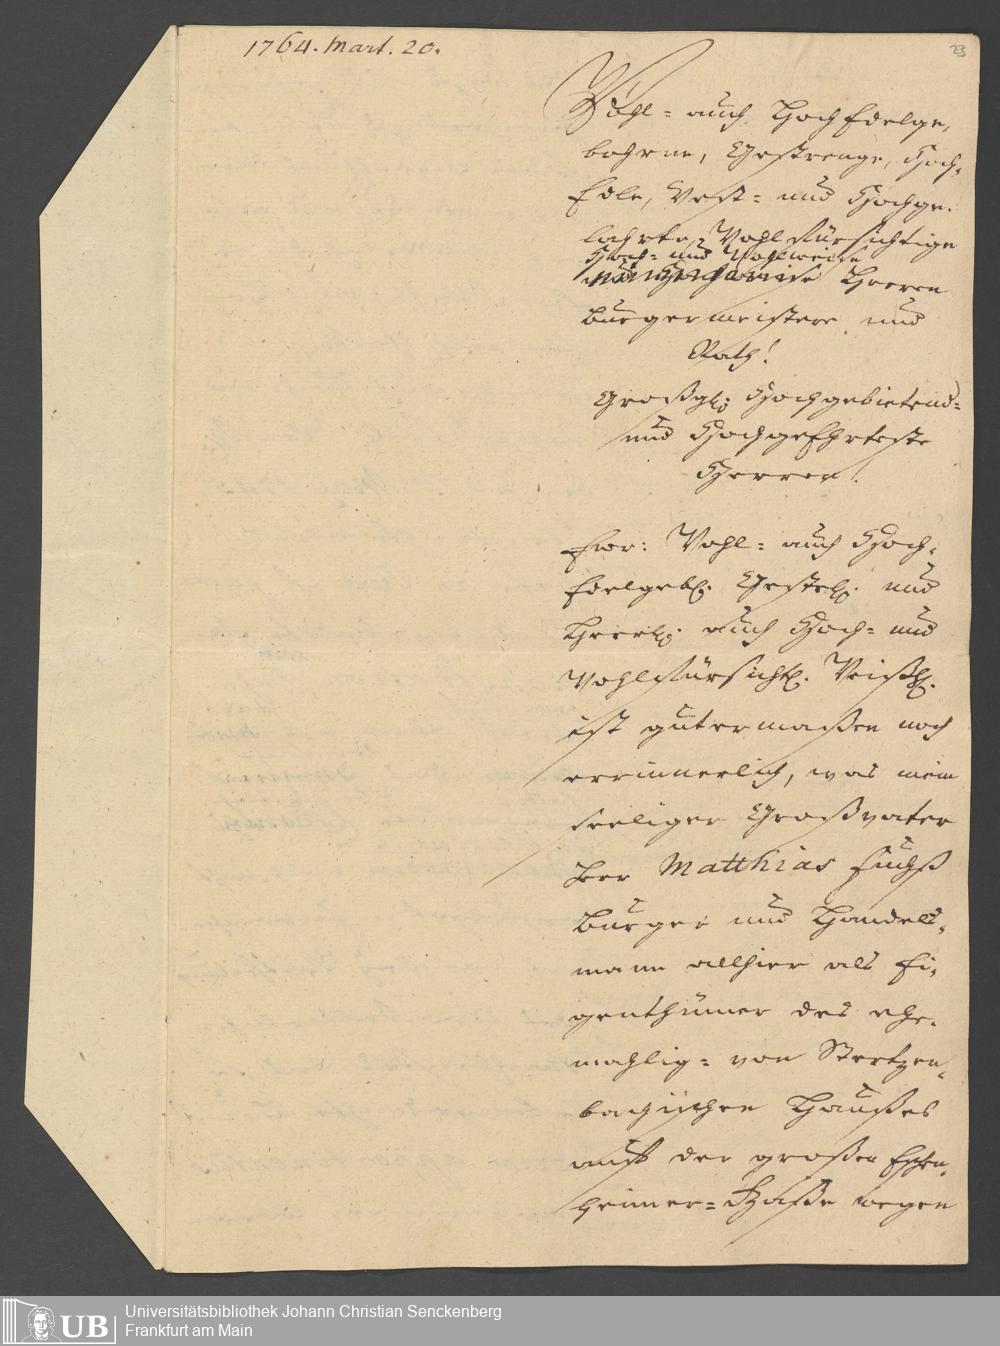 1764. Mart. 20.
23
Wohl- auch HochEdelge,
bohrne, Gestrenge, Hoch,
Edle, Vest- und Hochge,
lahrte, Wohlfürsichtige
Hoch- und Wohlweise
Herren
Burgermeistere und
Rath!
Großg: Hochgebietend-
und HochgeEhrteste
Herren!
Ewr: Wohl- auch Hoch,
Edelgebl. Gestrl. und
Herrl. auch Hoch- und
Wohlfürsichtl. Weißh.
ist gutermaßen noch
errinnerlich, was mein
seeliger Großvater
der Matthias Fuchß
Burger und Handels,
mann allhier als Ei,
genthümer des ehe,
mahlig- von Stertzen,
bachischen Haußes
auff der großen Eschen,
heimer-Gaße wegen
UB
Universitätsbibliothek Johann Christian Senckenberg
Frankfurt am Main